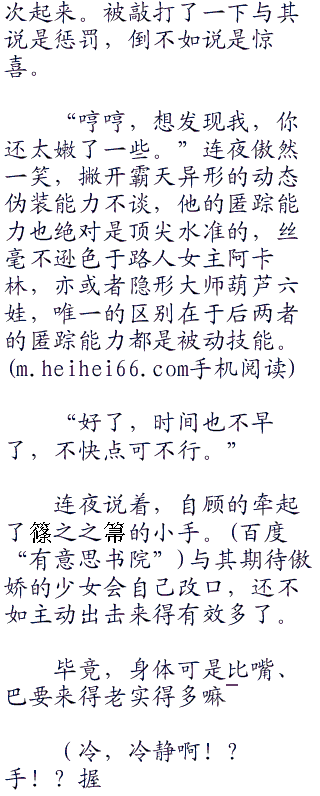 次起来。被敲打了一下与其
说是惩罚，倒不如说是惊
喜。
“哼哼，想发现我，你
还太嫩了一些。”连夜傲然
一笑，撇开霸天异形的动态
伪装能力不谈，他的匿踪能
力也绝对是顶尖水准的，丝
毫不逊色于路人女主阿卡
林，亦或者隐形大师葫芦六
娃，唯一的区别在于后两者
的匿踪能力都是被动技能。
(m.heihei66.com手机阅读)
“好了，时间也不早
了，不快点可不行。”
连夜说着，自顾的牵起
了篠之之箒的小手。(百度
“有意思书院”)与其期待傲
娇的少女会自己改口，还不
如主动出击来得有效多了。
毕竟，身体可是比嘴、
巴要来得老实得多嘛¯
（冷，冷静啊！？
手！？握